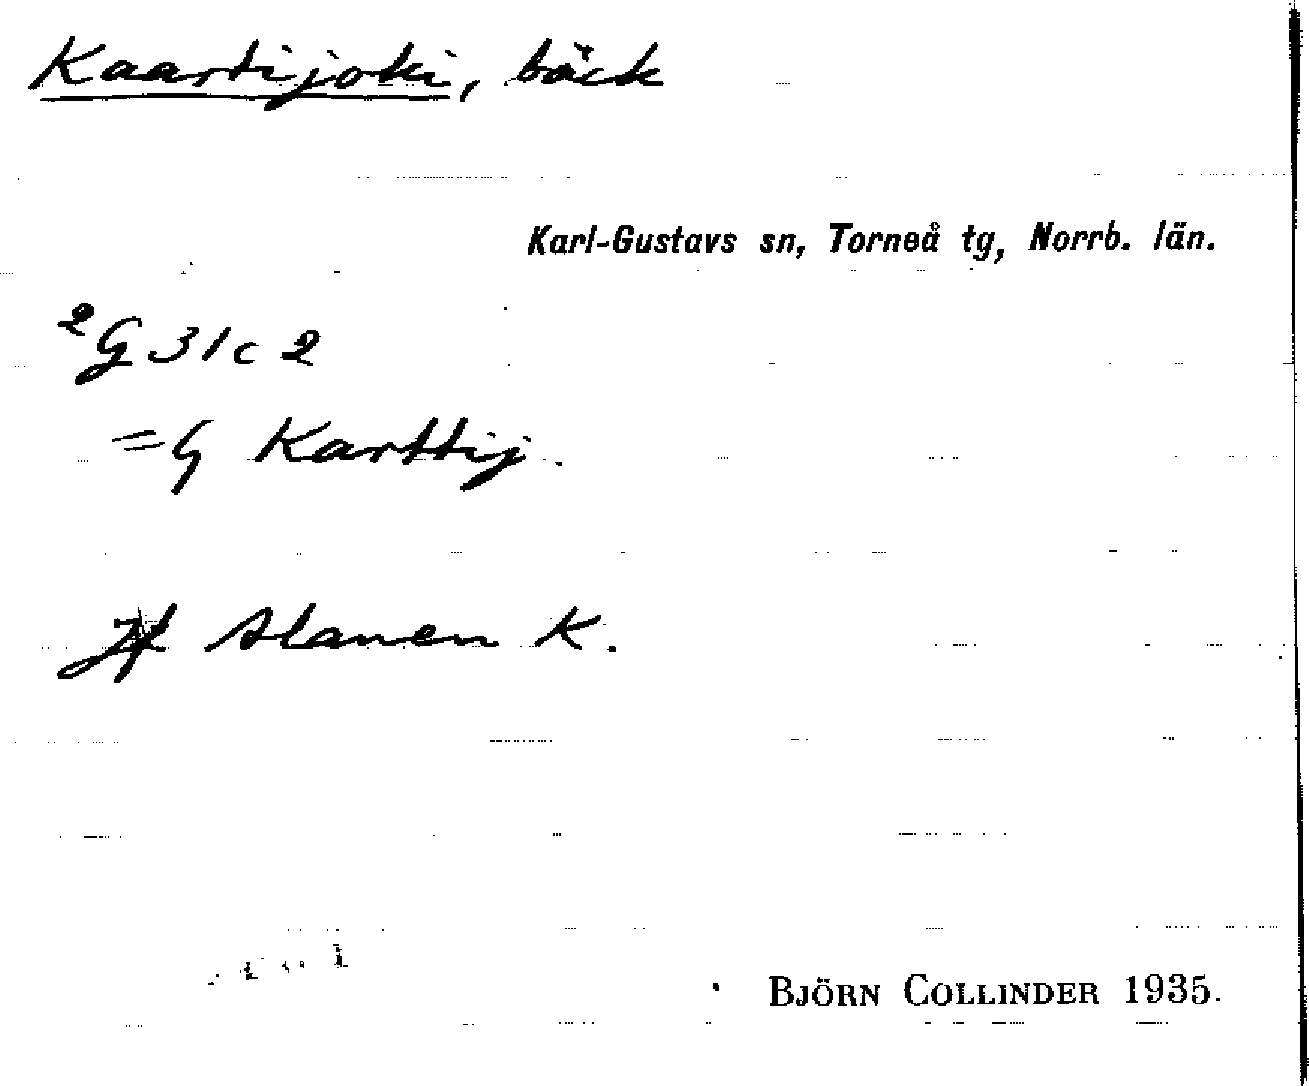 Kaartijoki, bäck
Karl-Gustavs sn, Torneå tg, Norrb. län.
²G 31 c 2
= G Karttij.
Jf Alanen K.
BJÖRN COLLINDER 1935.